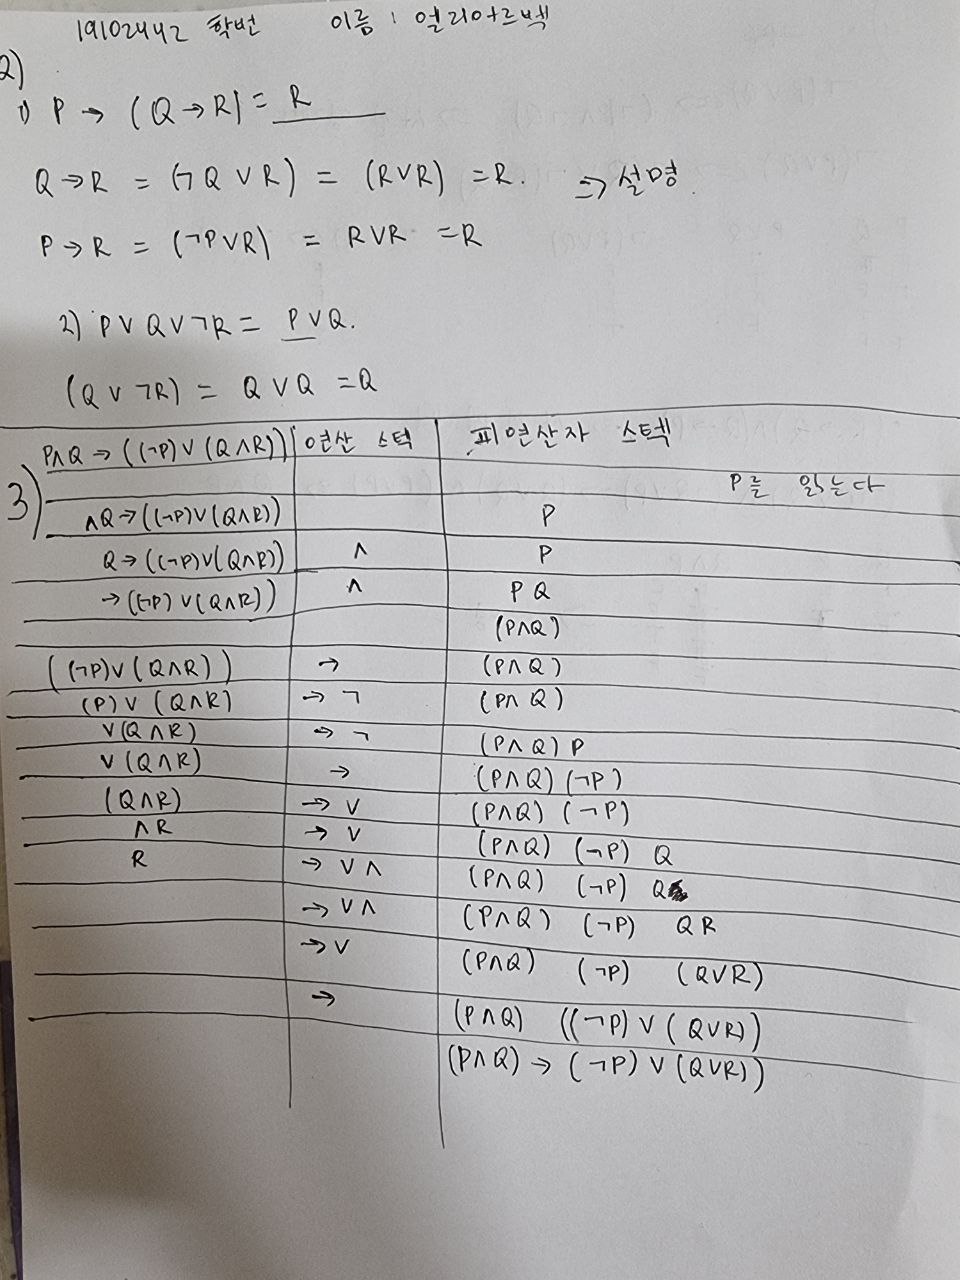 19102442 학번 이름 : 얼리아르벡
2)
1) P → (Q → R) = R
Q → R = (¬Q ∨ R) = (R∨R) = R. => 설명.
P → R = (¬P∨R) = R∨R = R
2) P ∨ Q ∨ ¬R = P∨Q.
(Q ∨ ¬R) = Q ∨ Q = Q
3) P∧Q → ((¬P) ∨ (Q∧R)) 연산 스턱 피연산자 스텍
P를 읽는다
∧Q → ((¬P)∨(Q∧R)) P
Q → ((¬P)∨(Q∧R)) ∧ P
→ ((¬P) ∨(Q∧R)) ∧ P Q
(P∧Q)
((¬P)∨(Q∧R)) → (P∧Q)
(P) ∨ (Q∧R) → ¬ (P∧Q)
∨(Q∧R) → ¬ (P∧Q) P
∨(Q∧R) → (P∧Q) (¬P)
(Q∧R) → ∨ (P∧Q) (¬P)
∧R → ∨ (P∧Q) (¬P) Q
R → ∨∧ (P∧Q) (¬P) Q
→ ∨∧ (P∧Q) (¬P) Q R
→ ∨ (P∧Q) (¬P) (Q∨R)
→ (P∧Q) ((¬P) ∨ (Q∨R))
(P∧Q) → (¬P) ∨ (Q∨R))